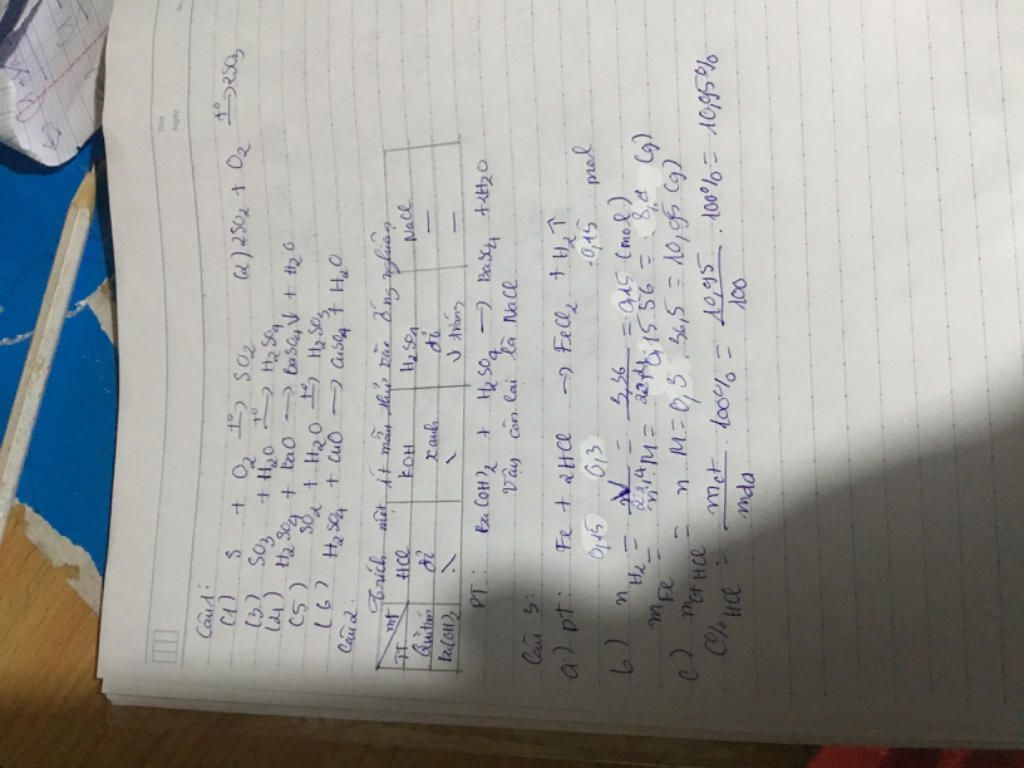 Câu 1:
(1) S + O2 t°→ SO2 (2) 2SO2 + O2 t°→ 2SO3
(3) SO3 + H2O t°→ H2SO4
(4) H2SO4 + BaO → BaSO4↓ + H2O
(5) SO2 + H2O t°→ H2SO3
(6) H2SO4 + CuO → CuSO4 + H2O
Câu 2:
Trích một ít mẫu thử vào ống nghiệm
TT MT HCl KOH H2SO4 NaCl
Quì tím đỏ xanh đỏ –
Ba(OH)2 \ \ ↓ trắng –
PT: Ba(OH)2 + H2SO4 → BaSO4 + 2H2O
Vậy còn lại là NaCl
Câu 3:
a) PT: Fe + 2HCl → FeCl2 + H2↑
0,15 0,3 0,15 mol
b) nH2 = V/22,4 = 3,36/22,4 = 0,15 (mol)
mFe = n.M = 0,15.56 = 8,4 (g)
c) mctHCl = n.M = 0,3.36,5 = 10,95 (g)
C%HCl = mct/mdd . 100% = 10,95/100 . 100% = 10,95%